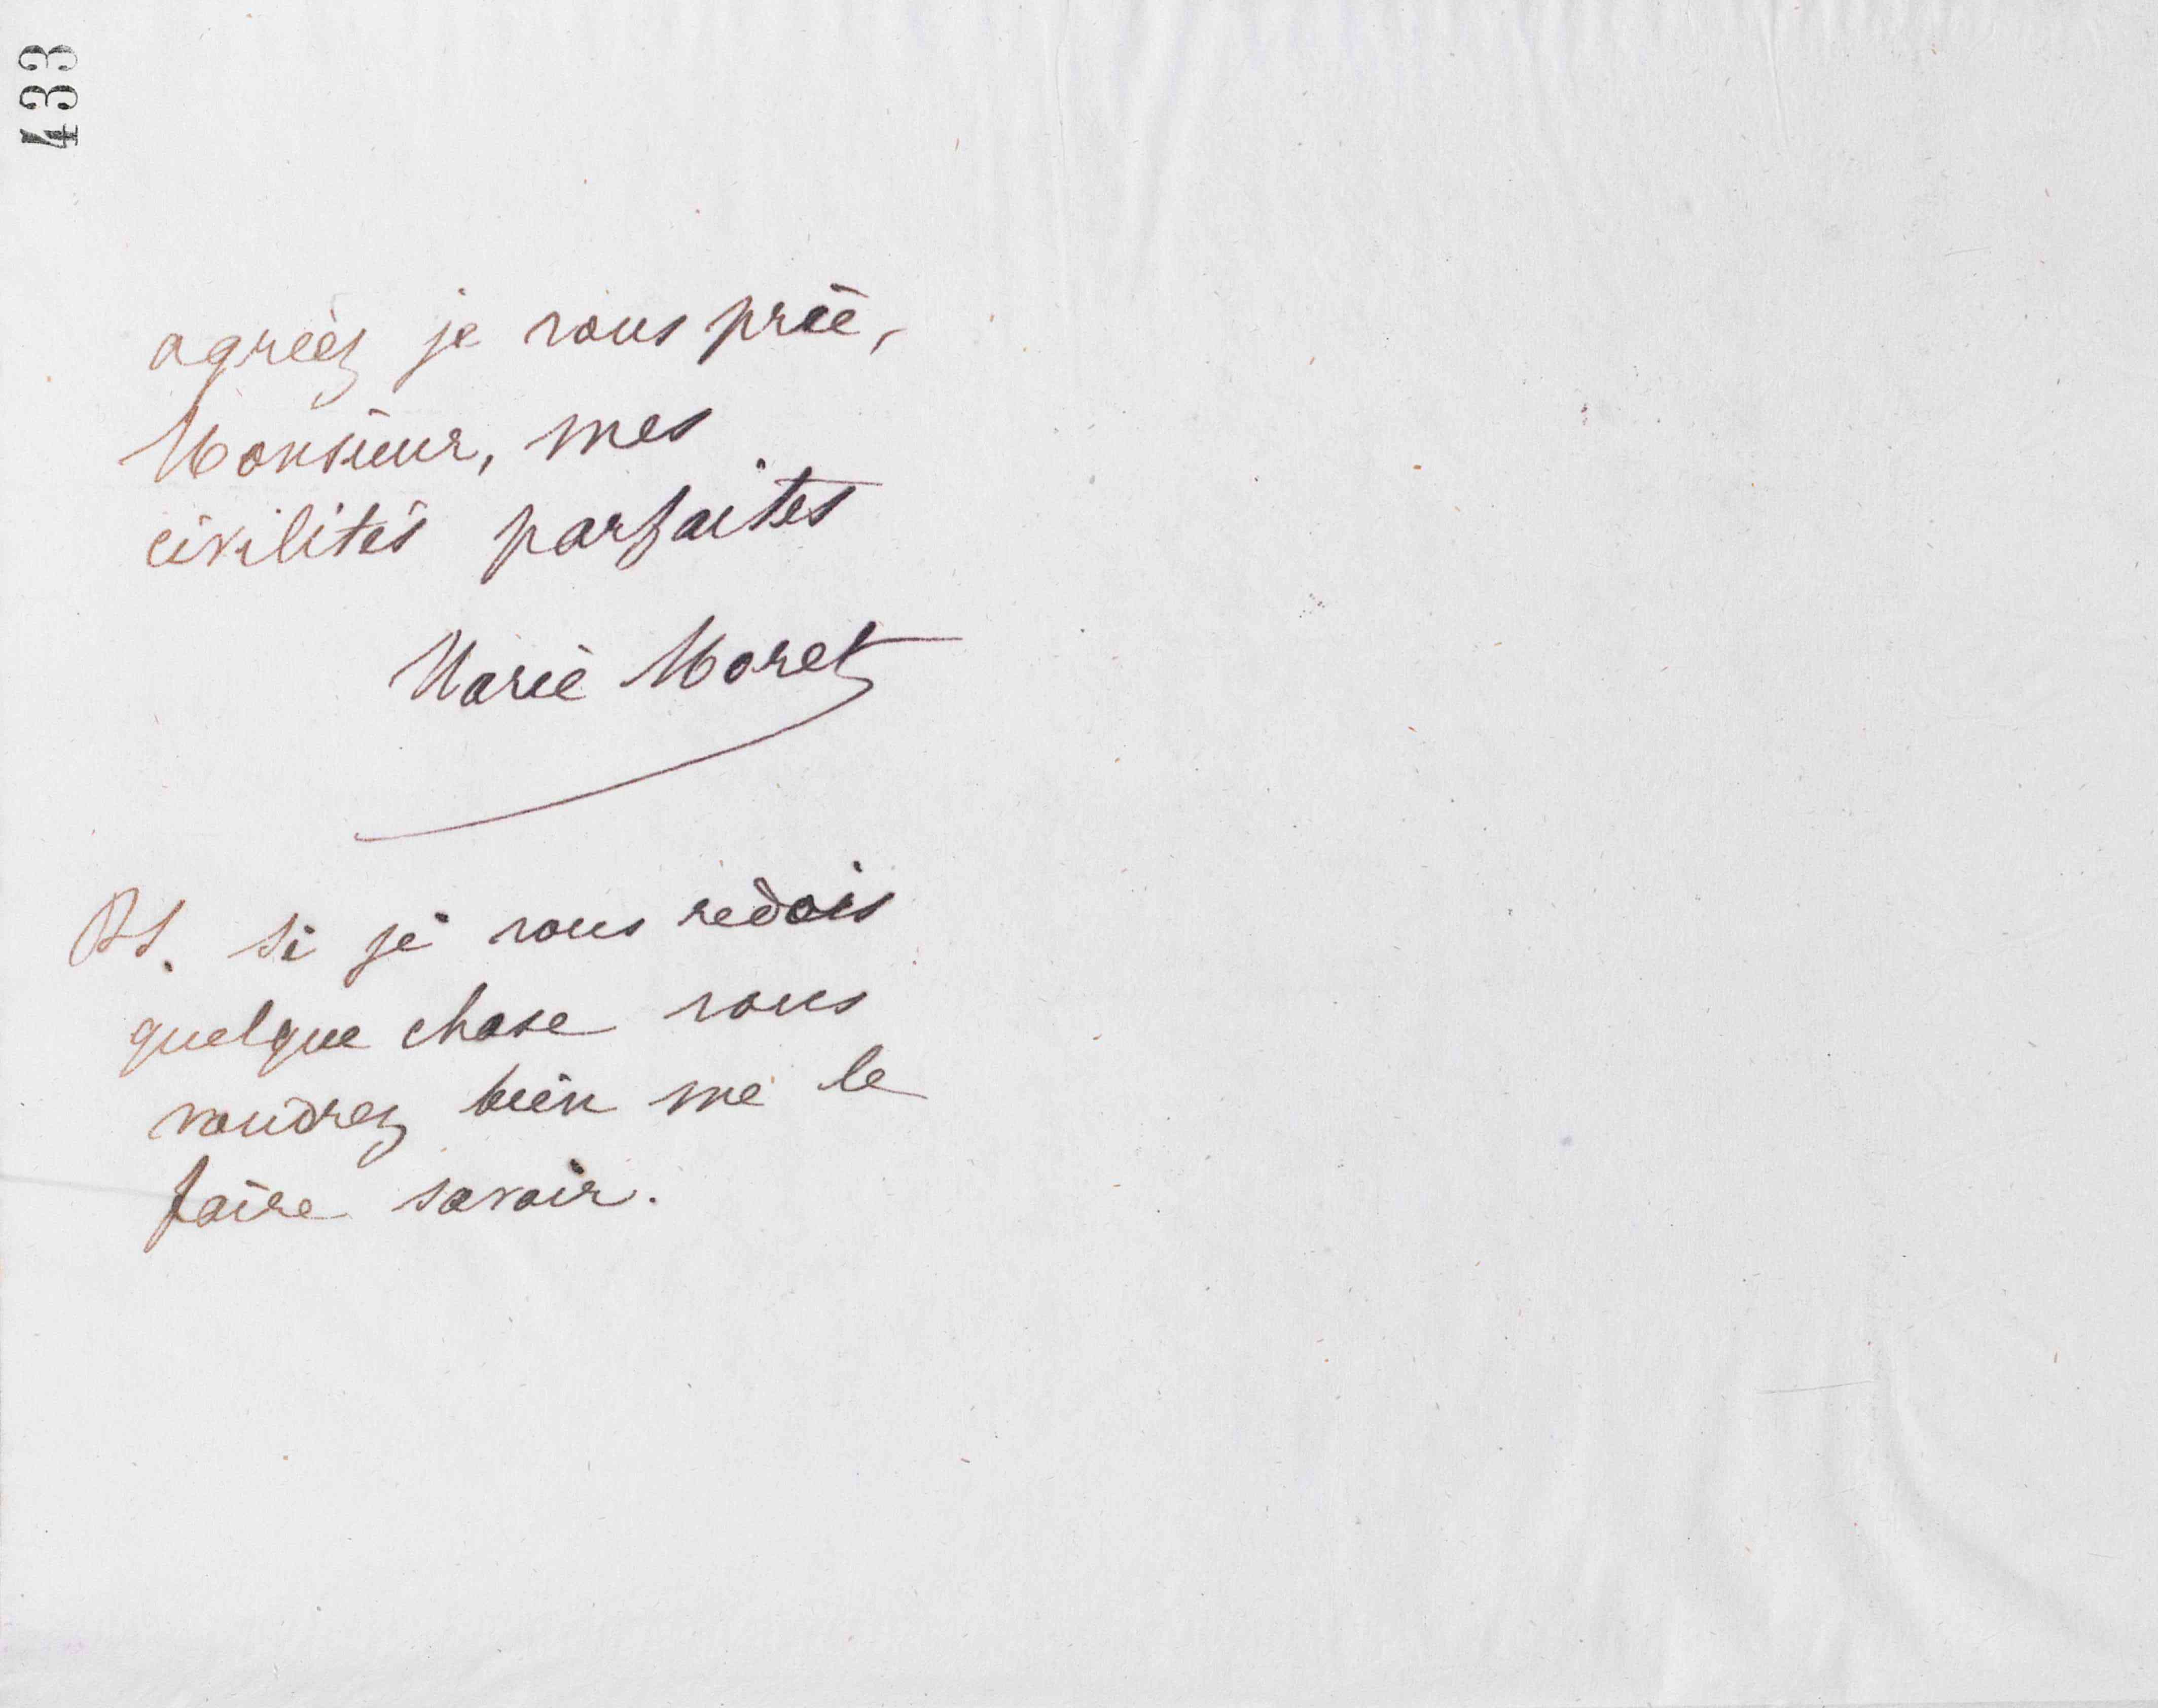 433
agréez je vous prie,
Monsieur, mes
civilités parfaites
Marie Moret
PS. si je vous redois
quelque chose vous
voudrez bien me le
faire savoir.